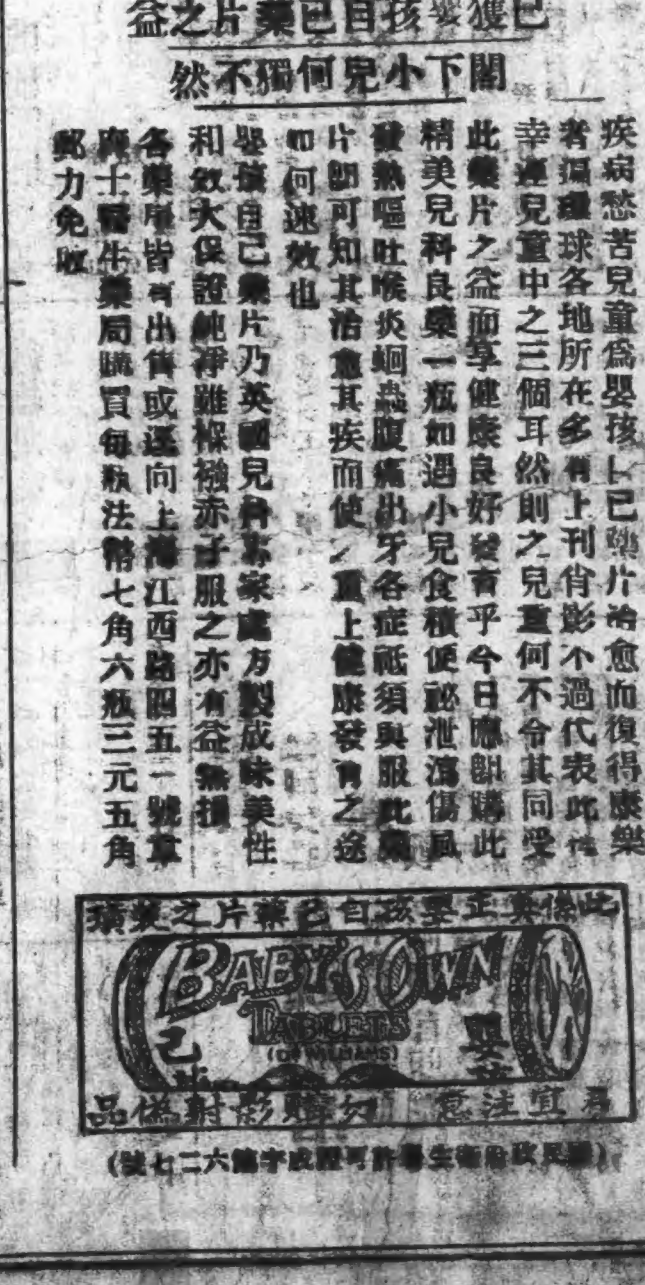 已獲嬰孩自己藥片之益
閣下小兒何獨不然
疾病愁苦兒童爲嬰孩自己藥片治愈而復得康樂
者環球各地所在多有上刊肖影不過代表此
幸運兒童中之三個耳然則之兒童何不令其同受
此藥片之益而享健康良好發育乎今日應卽購此
精美兒科良藥一瓶如遇小兒食積便祕泄瀉傷風
發熱嘔吐喉炎蛔蟲腹痛出牙各症祗須與服此藥
片卽可知其治愈其疾而使之重上健康發育之途
如何速效也
嬰孩自己藥片乃英國兒科專家處方製成味美性
和效大保證純淨雖襁褓赤子服之亦有益無損
各藥房皆有出售或逕向上海江西路四五一號韋
廉士醫生藥局購買每瓶法幣七角六瓶三元五角
郵力免收
此係眞正嬰孩自己藥片之
BABY'S OWN
TABLETS
(DR WILLIAMS)
嬰孩
自己
宜注意 勿購影射僞品
(國民政府衛生署許可證成字第六二七號)